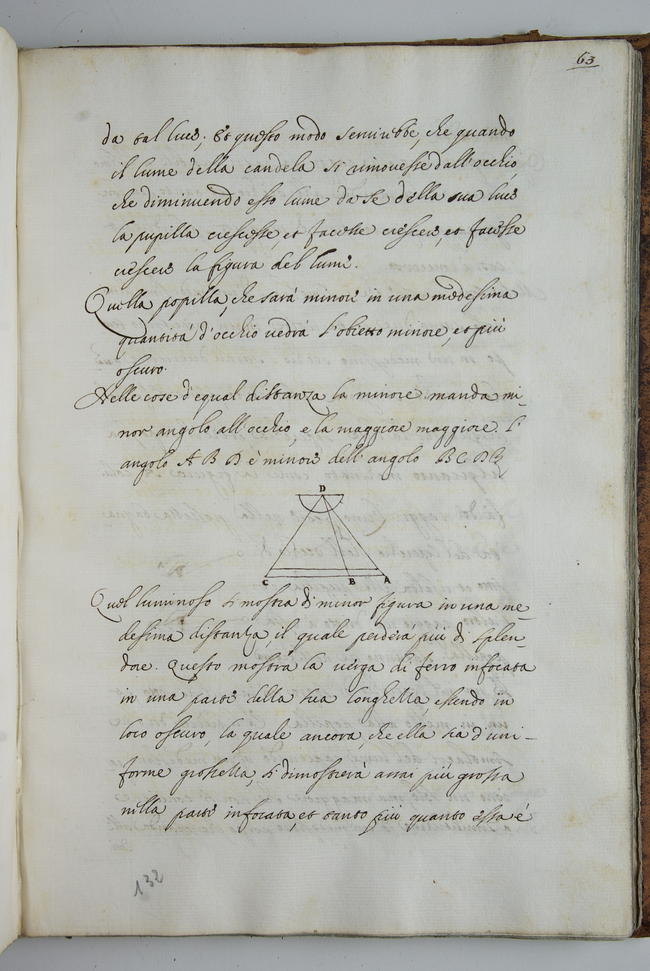 63
da tal luce; et questo modo servirebbe, che quando
il lume della candela si rimovesse dall'occhio,
che diminuendo esso lume da se della sua luce
la pupilla crescesse, et facesse crescere, et facesse
crescere la figura del lume.
Quella popilla, che sarà minore in una medesima
quantità d'occhio vedrà l'obietto minore, et più
oscuro.
Nelle cose d'equal distanza la minore manda mi-
nor angolo all'occhio, e la maggiore maggiore. l'
angolo A B D è minore dell'angolo B C D
D
C B A
Quel luminoso si mostra di minor figura in una me-
desima distanza, il quale perderà più di splen-
dore. Questo mostra la verga di ferro infocata
in una parte della sua longhezza, essendo in
loco oscuro, la quale ancora, che ella sia d'uni-
forme grossezza, si dimostrerà assai più grossa
nella parte infocata, et tanto più quanto essa è
132